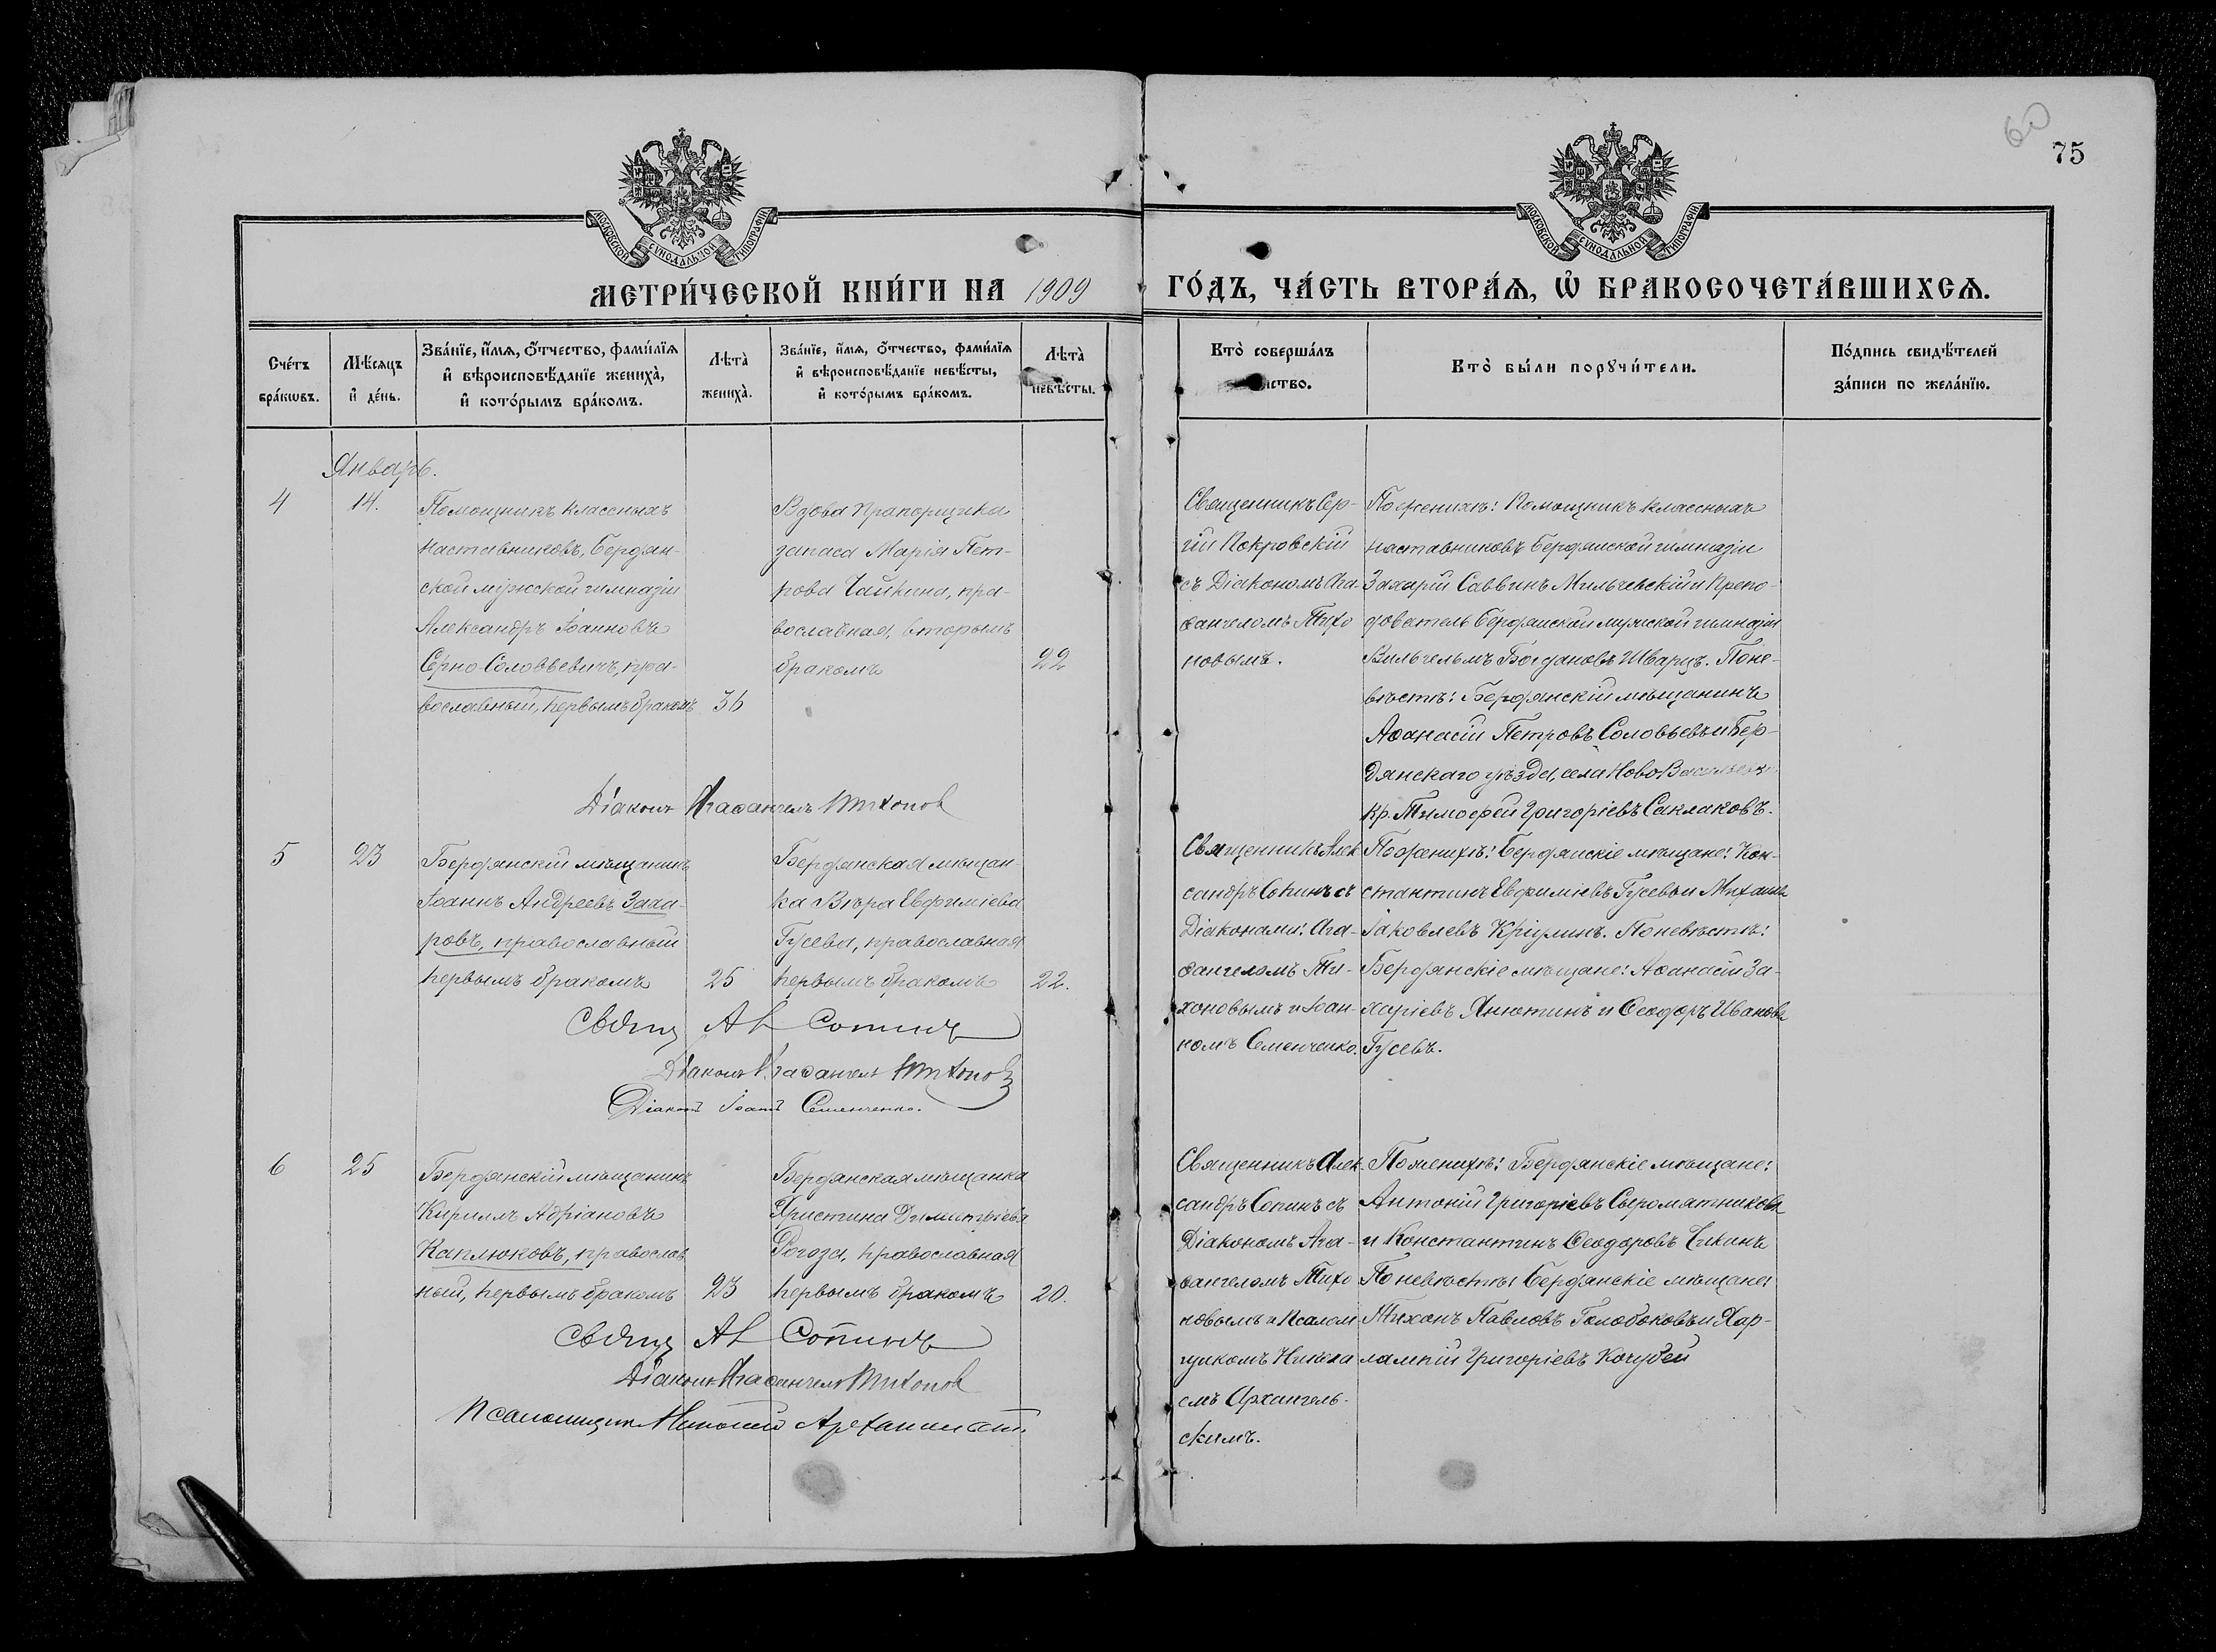 60
75
МОСКОВСКОЙ СѴНОДАЛЬНОЙ ТИПОГРАФІИ
МОСКОВСКОЙ СѴНОДАЛЬНОЙ ТИПОГРАФІИ
МЕТРИ́ЧЕСКОЙ КНИ́ГИ НА 1909 ГО́ДЪ, ЧА́СТЬ ВТОРА́Ѧ, Ѡ҆ БРАКОСОЧЕТА́ВШИХСѦ.
Сче́тъ
бра́кѡвъ.
Мѣ́сѧцъ
и҆ де́нь.
Зва́нїе, и҆́мѧ, ѻ҆́тчество, фами́лїѧ
и҆ вѣроисповѣ́данїе жениха̀,
и҆ кото́рымъ бра́комъ.
Лѣта̀
жениха̀.
Зва́нїе, и҆́мѧ, ѻ҆́тчество, фами́лїѧ
и҆ вѣроисповѣ́данїе невѣ́сты,
и҆ кото́рымъ бра́комъ.
Лѣта̀
невѣ́сты.
Кто̀ соверша́лъ
ство.
Кто̀ бы́ли порꙋчи́тели.
По́дпись свидѣ́телей
за́писи по жела́нїю.
Январь.
4
14.
Помощникъ классныхъ
наставниковъ, Бердян-
ской мужской гимназіи
Александръ Іоанновъ
Серно-Соловьевичъ, пра-
вославный, первымъ бракомъ
36
Вдова прапорщика
запаса Марія Пет-
рова Чайкина, пра-
вославная, вторымъ
бракомъ
22
Священникъ Сер-
гій Покровскій
съ Діакономъ Ага-
ѳангеломъ Тихо
новымъ.
По женихѣ: Помощникъ классныхъ
наставниковъ Бердянской гимназіи
Захарій Саввинъ Мильчевскій и Препо-
даватель Бердянской мужской гимназіи
Вильгельмъ Богдановъ Шварцъ. По не-
вѣстѣ: Бердянскій мѣщанинъ
Аѳанасій Петровъ Соловьевъ и Бер-
дянскаго уѣзда, села Ново
кр. Тимофей Григоріевъ Саклаковъ.
Діаконъ Агаѳангелъ Тихонов
5
23
Бердянскій мѣщанинъ
Іоаннъ Андреевъ Заха-
ровъ, православный
первымъ бракомъ
25
Бердянская мѣщан-
ка Вѣра Евфиміева
Гусева, православная
первымъ бракомъ
22.
Священникъ Алек
сандръ Сопинъ съ
Діаконами: Ага-
ѳангеломъ Ти-
хоновымъ и Іоан-
номъ Семенченко.
По женихѣ: Бердянскіе мѣщане: Кон-
стантинъ Евфиміевъ Гусевъ и Михаилъ
Іаковлевъ Кріулинъ. По невѣстѣ:
Бердянскіе мѣщане: Аѳанасій За-
харіевъ Анютинъ и Ѳеодоръ Ивановъ
Гусевъ.
Свящ Ал Сопинъ
Діаконъ Агаѳангелъ Тихонов
Діаконъ Іоаннъ Семенченко.
6
25
Бердянскій мѣщанинъ
Кириллъ Адріановъ
Каплюковъ, православ
ный, первымъ бракомъ
23
Бердянская мѣщанка
Христина Димитріева
Рогоза, православная
первымъ бракомъ
20.
Священникъ Алек-
сандръ Сопинъ съ
Діакономъ Ага-
ѳангеломъ Тихо
новымъ и Псалом
щикомъ Никола
емъ Архангель-
скимъ.
По женихѣ: Бердянскіе мѣщане:
Антоній Григоріевъ Сыромятниковъ
и Константинъ Ѳеодоровъ Чикинъ
По невѣстѣ: Бердянскіе мѣщане:
Тихонъ Павловъ Голобоковъ и Хар-
лампій Григоріевъ Кочубей
Свящ Ал Сопинъ
Діаконъ Агаѳангелъ Тихонов
Псаломщик Николай